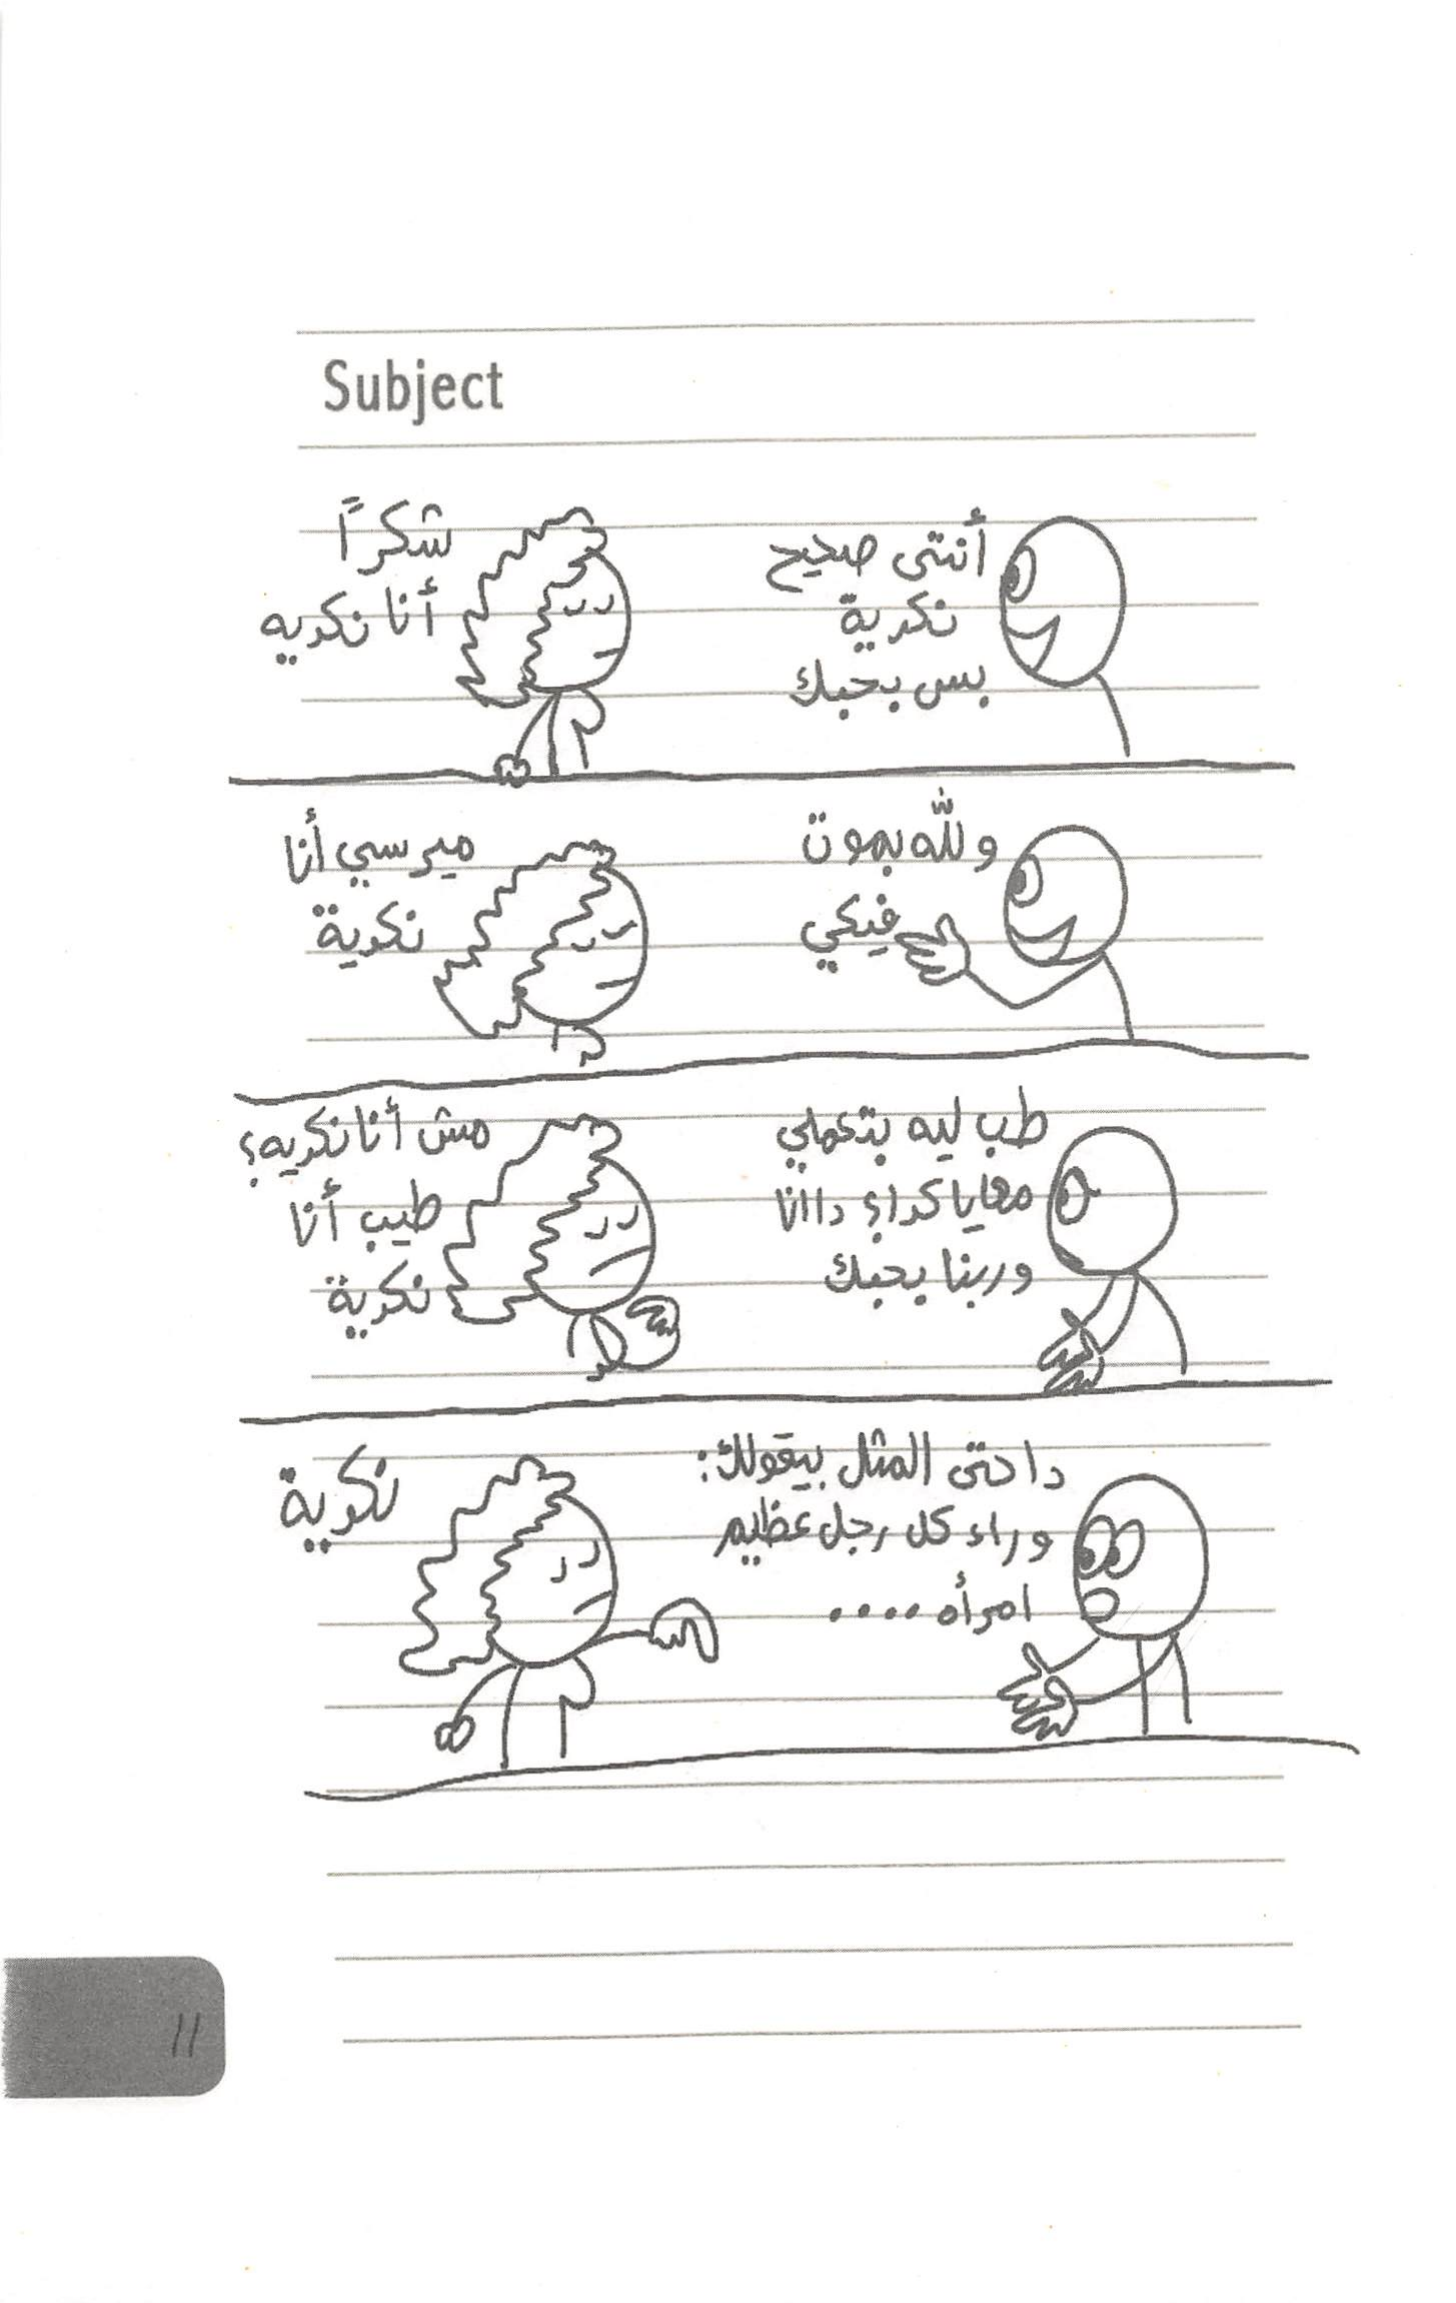 Subject
أنتى صحيح
نكدية
بس بحبك
شكراً
أنا نكديه
ولله بموت
فيكي
ميرسي أنا
نكدية
طب ليه بتعملي
معايا كدا؟ داانا
وربنا بحبك
مش أنا نكديه؟
طيب أنا
نكدية
داحتى المثل بيقولك:
وراء كل رجل عظيم
امرأه ....
نكدية
11